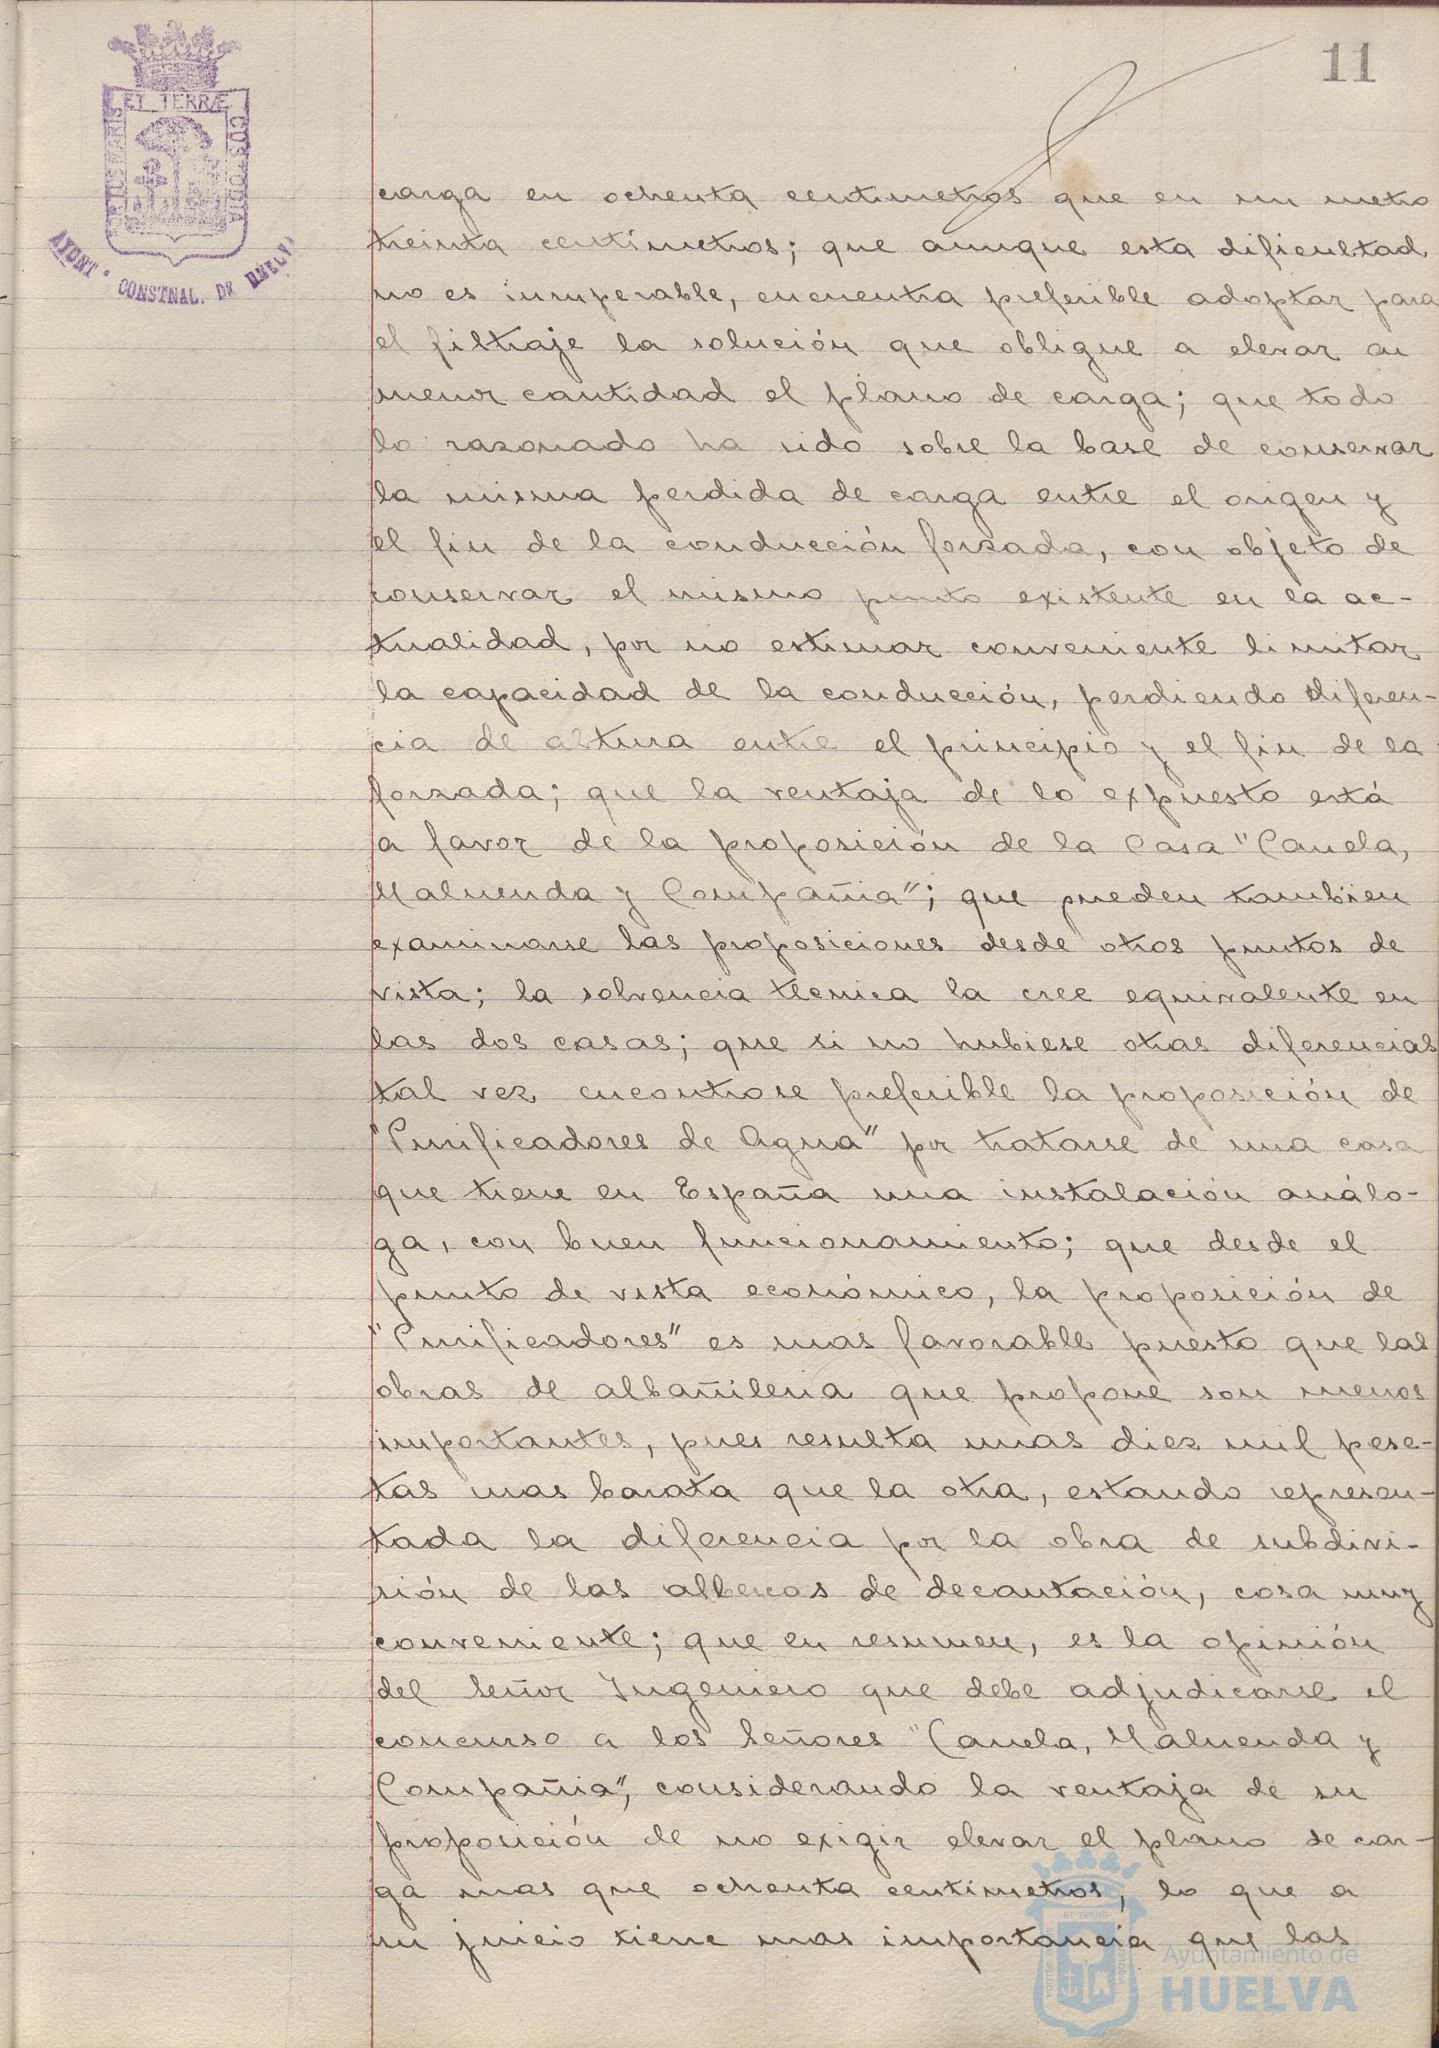 11
ET TERRÆ
PORTUS MARIS
CUSTODIA
AYUNT° CONSTNAL. DE HUELVA
carga en ochenta centimetros que en un metro
treinta centimetros; que aunque esta dificultad
no es insuperable, encuentra preferible adoptar para
el filtraje la solución que obligue a elevar en
menor cantidad el plano de carga; que todo
lo razonado ha sido sobre la base de conservar
la misma perdida de carga entre el origen y
el fin de la conducción forzada, con objeto de
conservar el mismo punto existente en la ac-
tualidad, por no estimar conveniente limitar
la capacidad de la conducción, perdiendo diferen-
cia de altura entre el principio y el fin de la
forzada; que la ventaja de lo expuesto está
a favor de la proposición de la Casa "Canela,
Maluenda y Compañia"; que pueden tambien
examinarse las proposiciones desde otros puntos de
vista; la solvencia tecnica la cree equivalente en
las dos casas; que si no hubiese otras diferencias
tal vez encontrase preferible la proposición de
"Purificadores de Agua" por tratarse de una casa
que tiene en España una instalación análo-
ga, con buen funcionamiento; que desde el
punto de vista económico, la proposición de
"Purificadores" es mas favorable puesto que las
obras de albañileria que propone son menos
importantes, pues resulta unas diez mil pese-
tas mas barata que la otra, estando represen-
tada la diferencia por la obra de subdivi-
sión de las albercas de decantación, cosa muy
conveniente; que en resumen, es la opinión
del Señor Ingeniero que debe adjudicarse el
concurso a los Señores "Canela, Maluenda y
Compañia", considerando la ventaja de su
proposición de no exigir elevar el plano de car-
ga mas que ochenta centimetros, lo que a
su juicio tiene mas importancia que las
Ayuntamiento de
HUELVA